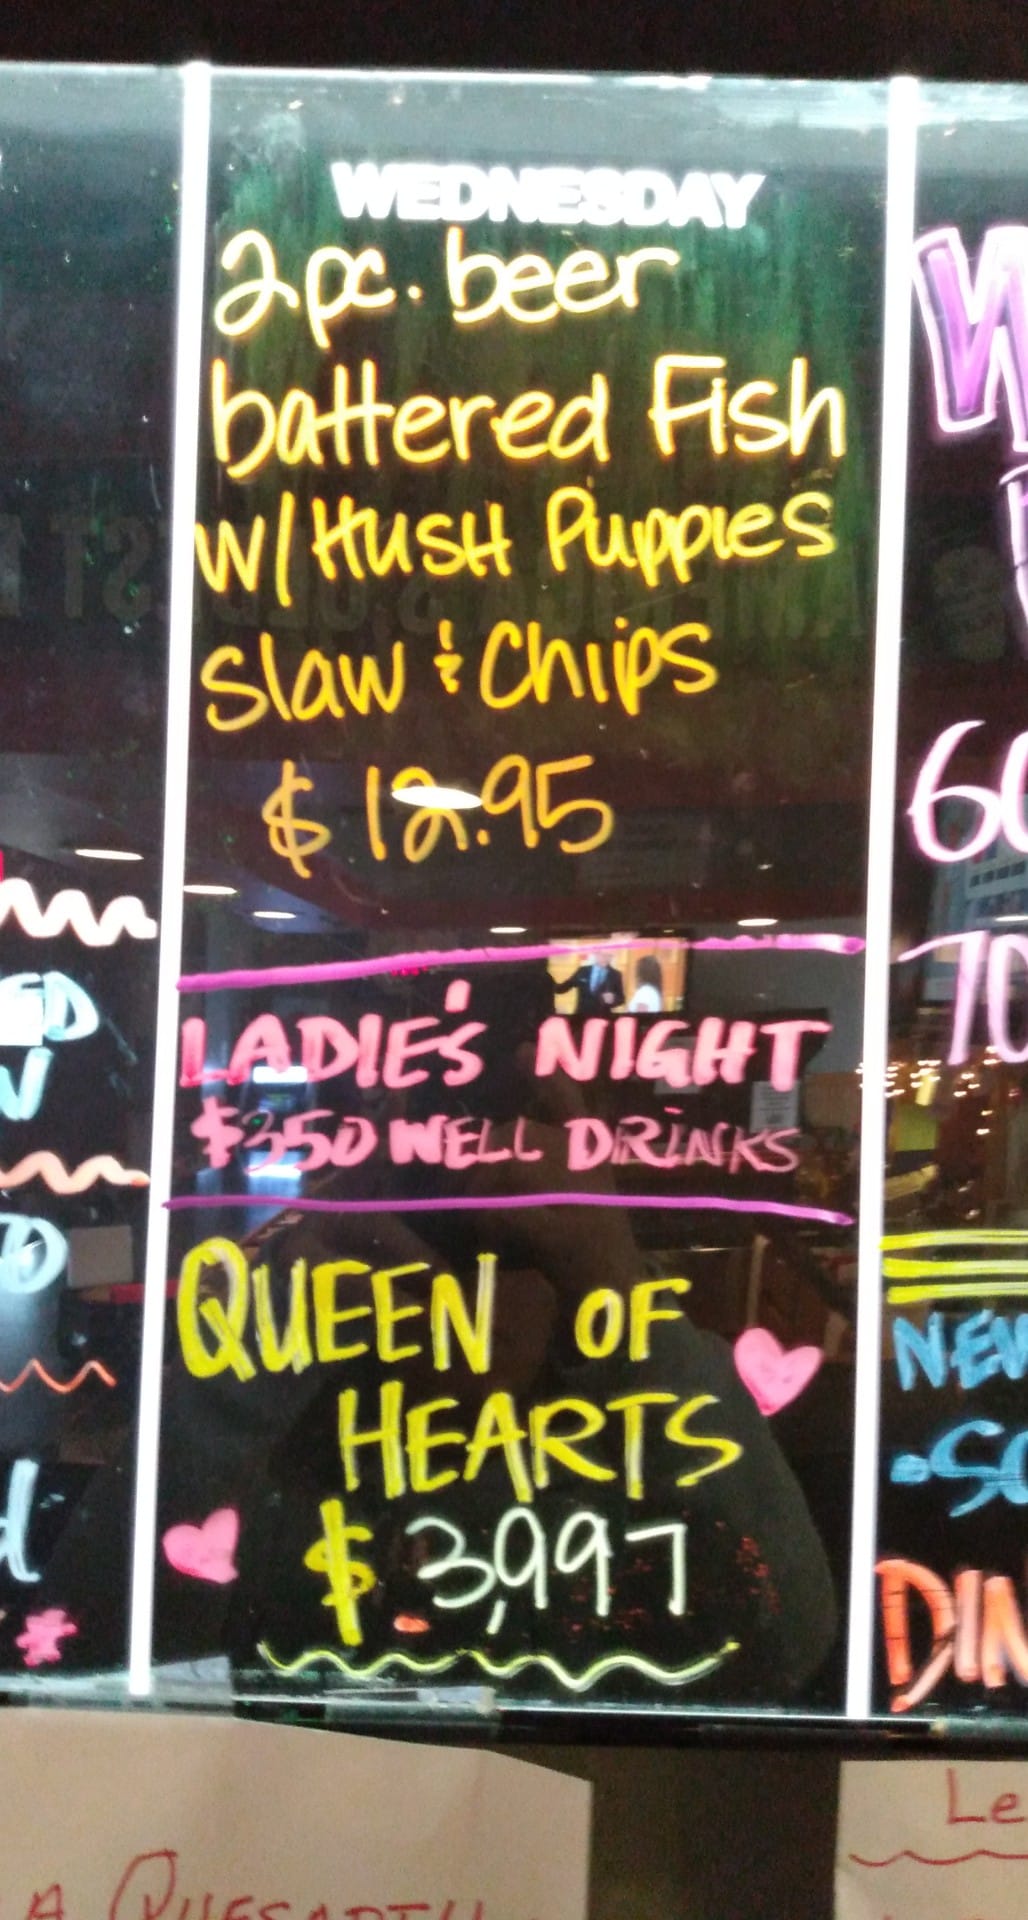 WEDNESDAY
2 pc. beer
battered Fish
w/ Hush Puppies
Slaw & Chips
$ 12.95
LADIE's NIGHT
$350 WELL DRINKS
QUEEN OF
HEARTS
$ 3,997
60
70
NEW
DIN
Le
A